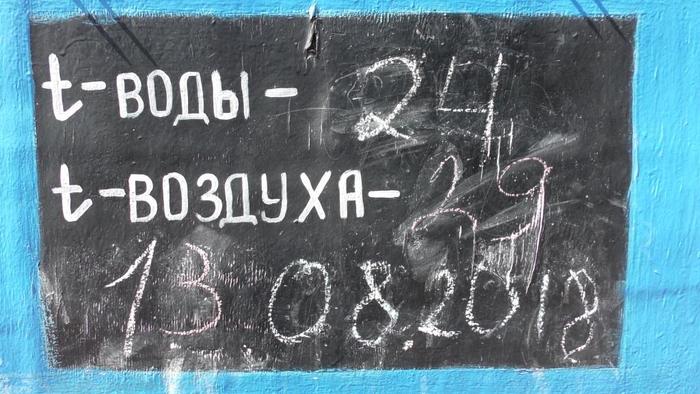 t-ВОДЫ- 24
t-ВОЗДУХА- 29
13 08.2018